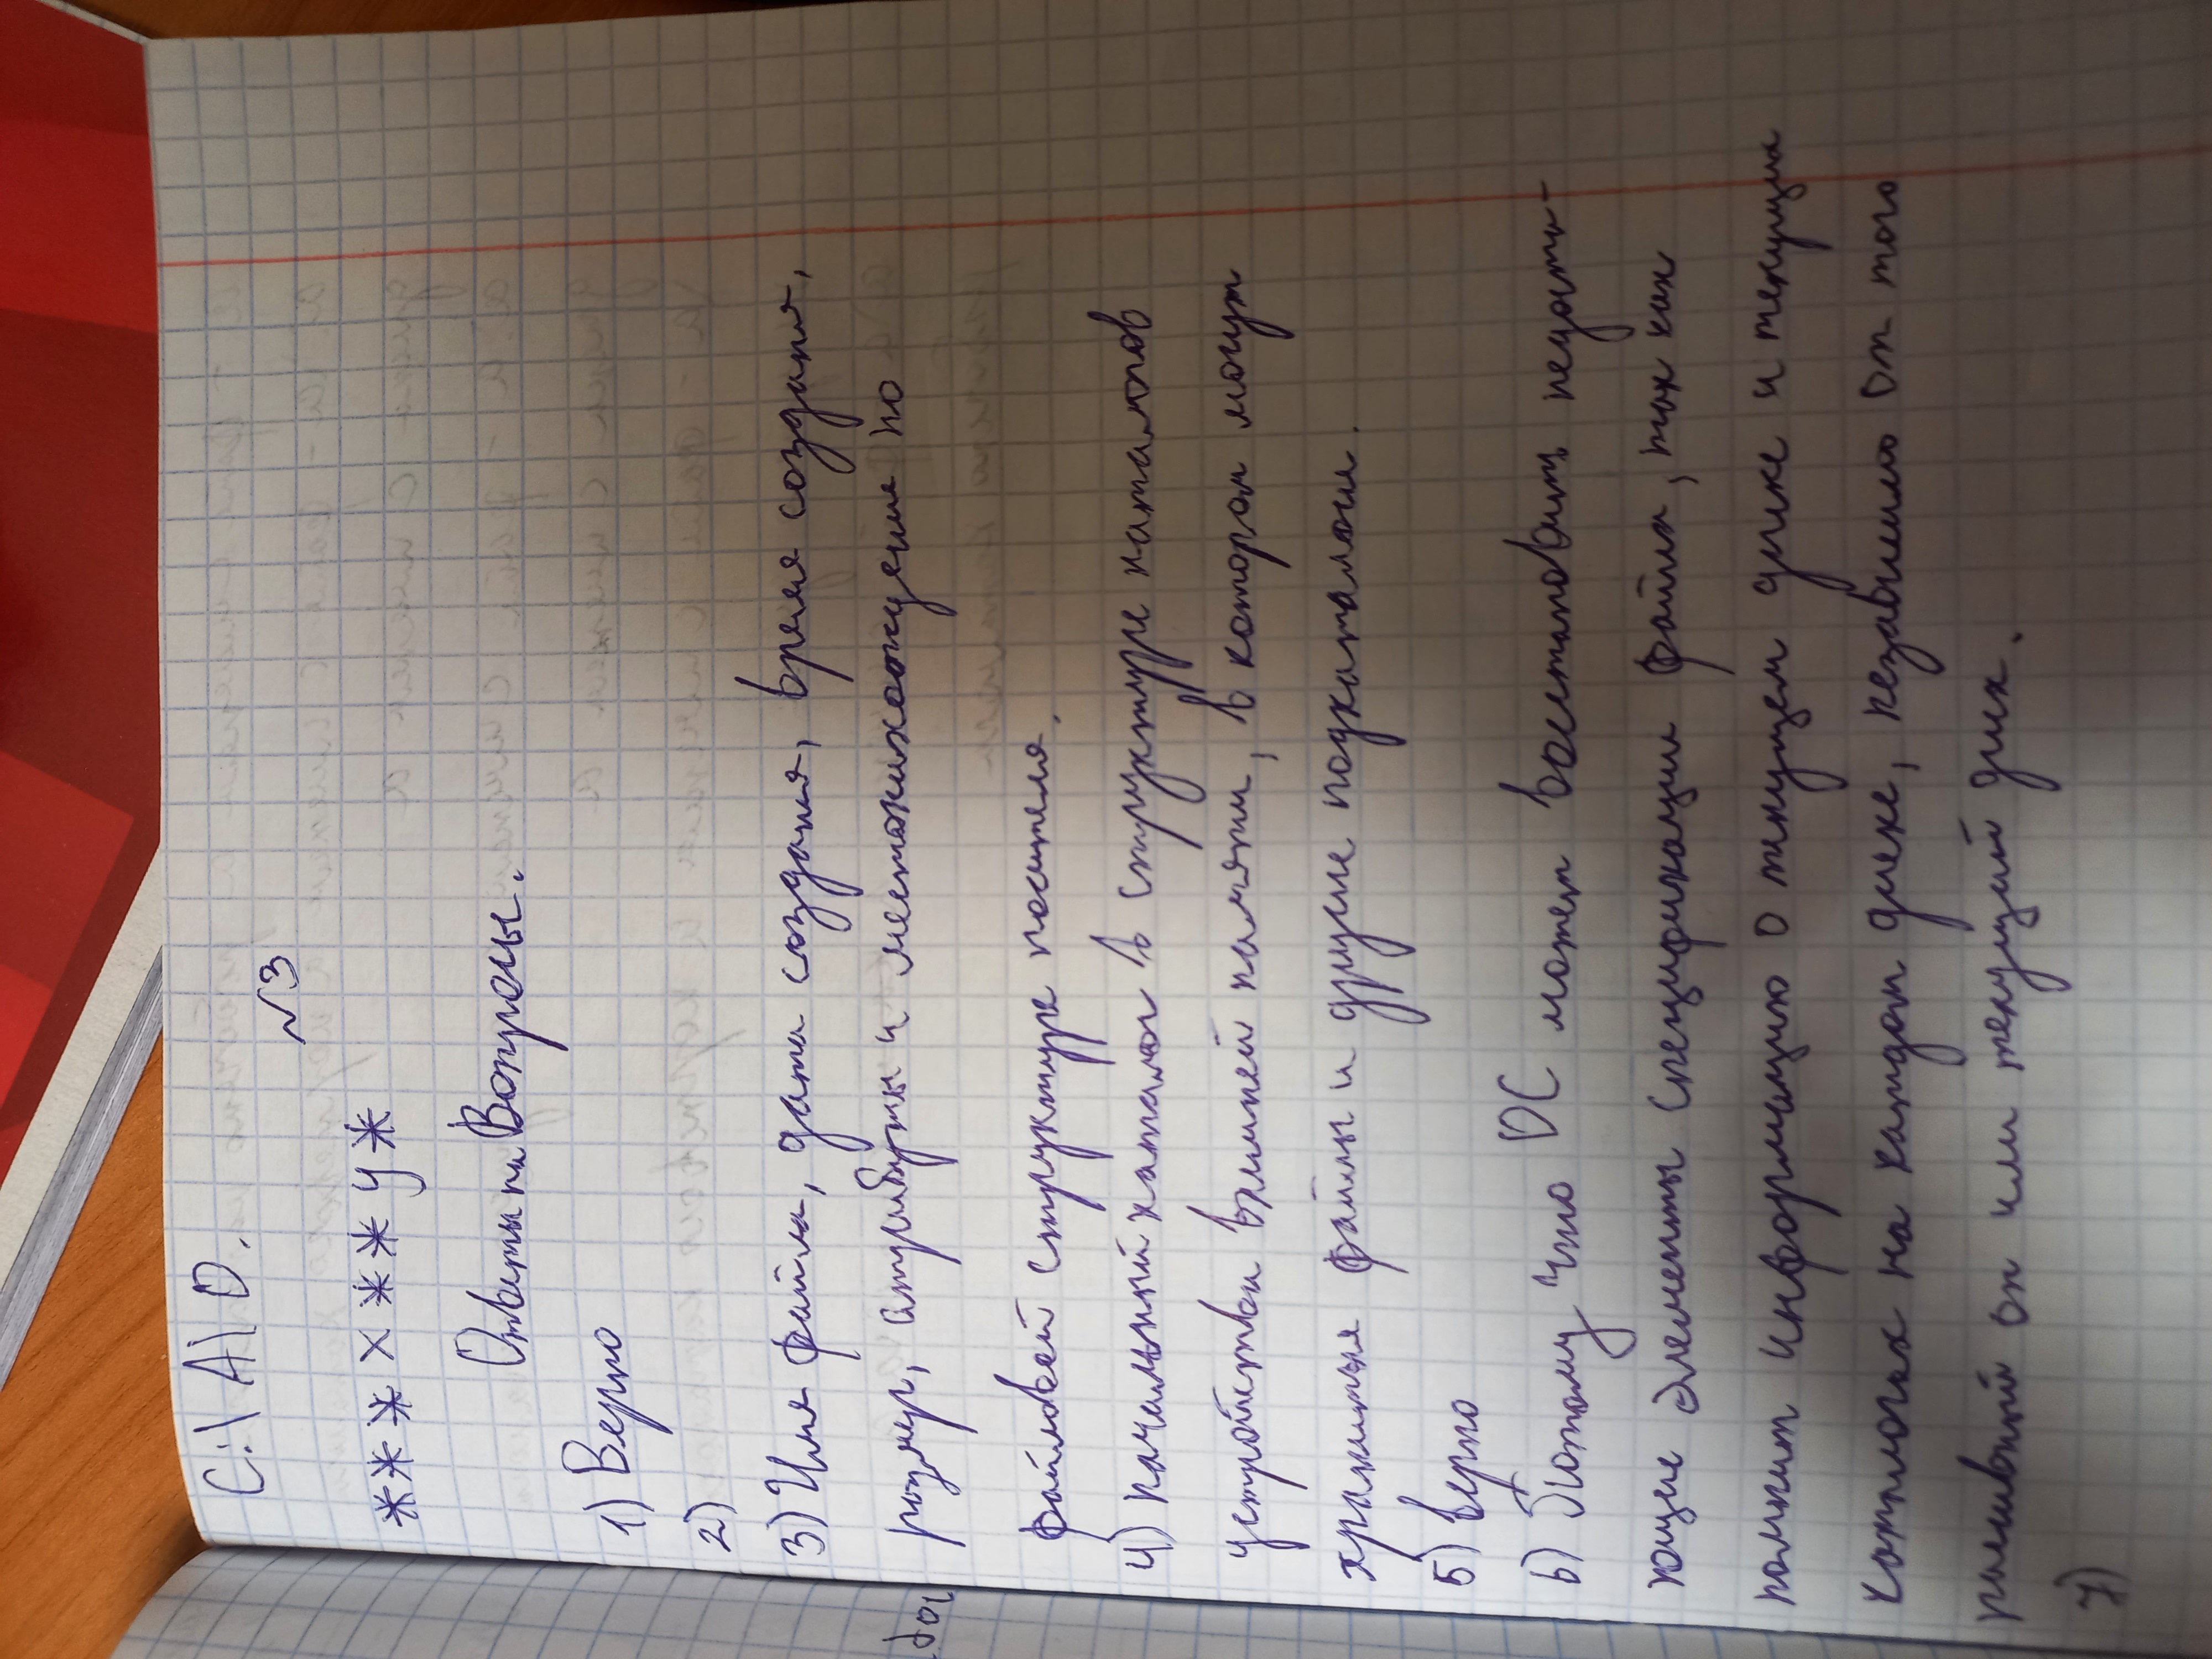 C:\A\O.
№3
***x**y*
Ответы на Вопросы.
1) Верно
2)
3) Имя файла, дата создания, время создания,
размер, атрибуты и местонахождение по
файловой структуре носителя.
4) начальный каталог в структуре каталогов
устройства внешней памяти, в котором могут
храниться файлы и другие подкаталоги.
5) верно
6) Потому что ОС может восстановить недоста-
ющие элементы спецификации файла, так как
помнит информацию о текущем диске и текущих
каталогах на каждом диске, независимо от того
пассивный он или текущий диск.
7)